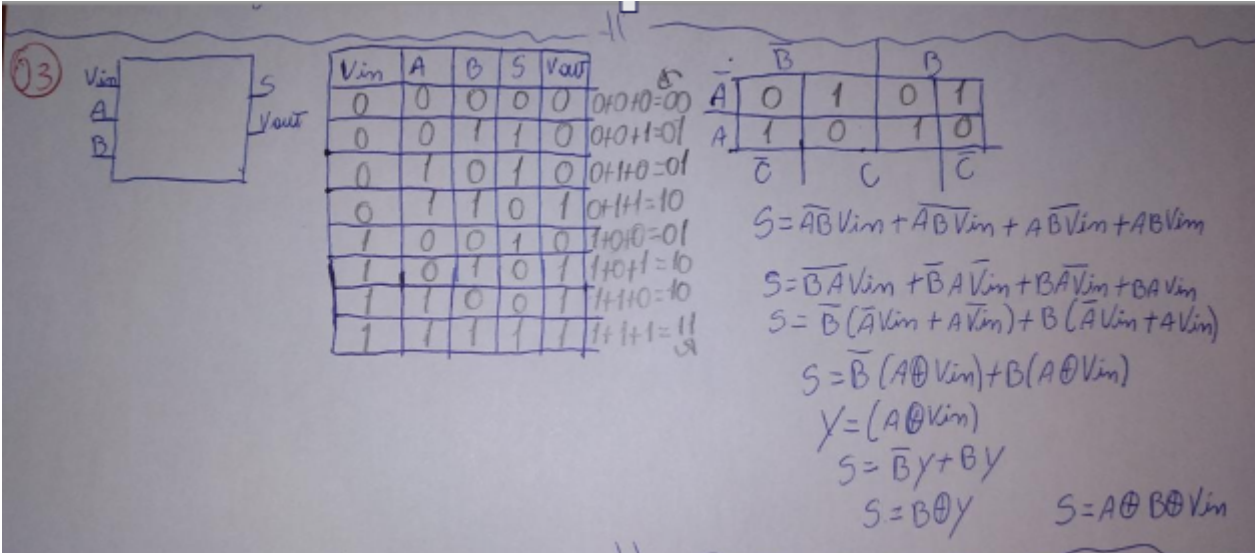 03
Vin
A
B
S
Vout
Vin A B S Vout
0 0 0 0 0 0+0+0=00
0 0 1 1 0 0+0+1=01
0 1 0 1 0 0+1+0=01
0 1 1 0 1 0+1+1=10
1 0 0 1 0 1+0+0=01
1 0 1 0 1 1+0+1=10
1 1 0 0 1 1+1+0=10
1 1 1 1 1 1+1+1=11
B̅ B
A̅ 0 1 0 1
A 1 0 1 0
C̅ C C̅
S=A̅B̅Vin+A̅B̅V̅in+AB̅V̅in+ABVin
S=B̅A̅Vin+B̅AV̅in+BA̅V̅in+BAVin
S=B̅(A̅Vin+AV̅in)+B(A̅Vin+AVin)
S=B̅(A⊕Vin)+B(A⊕Vin)
Y=(A⊕Vin)
S=B̅Y+BY
S=B⊕Y S=A⊕B⊕Vin